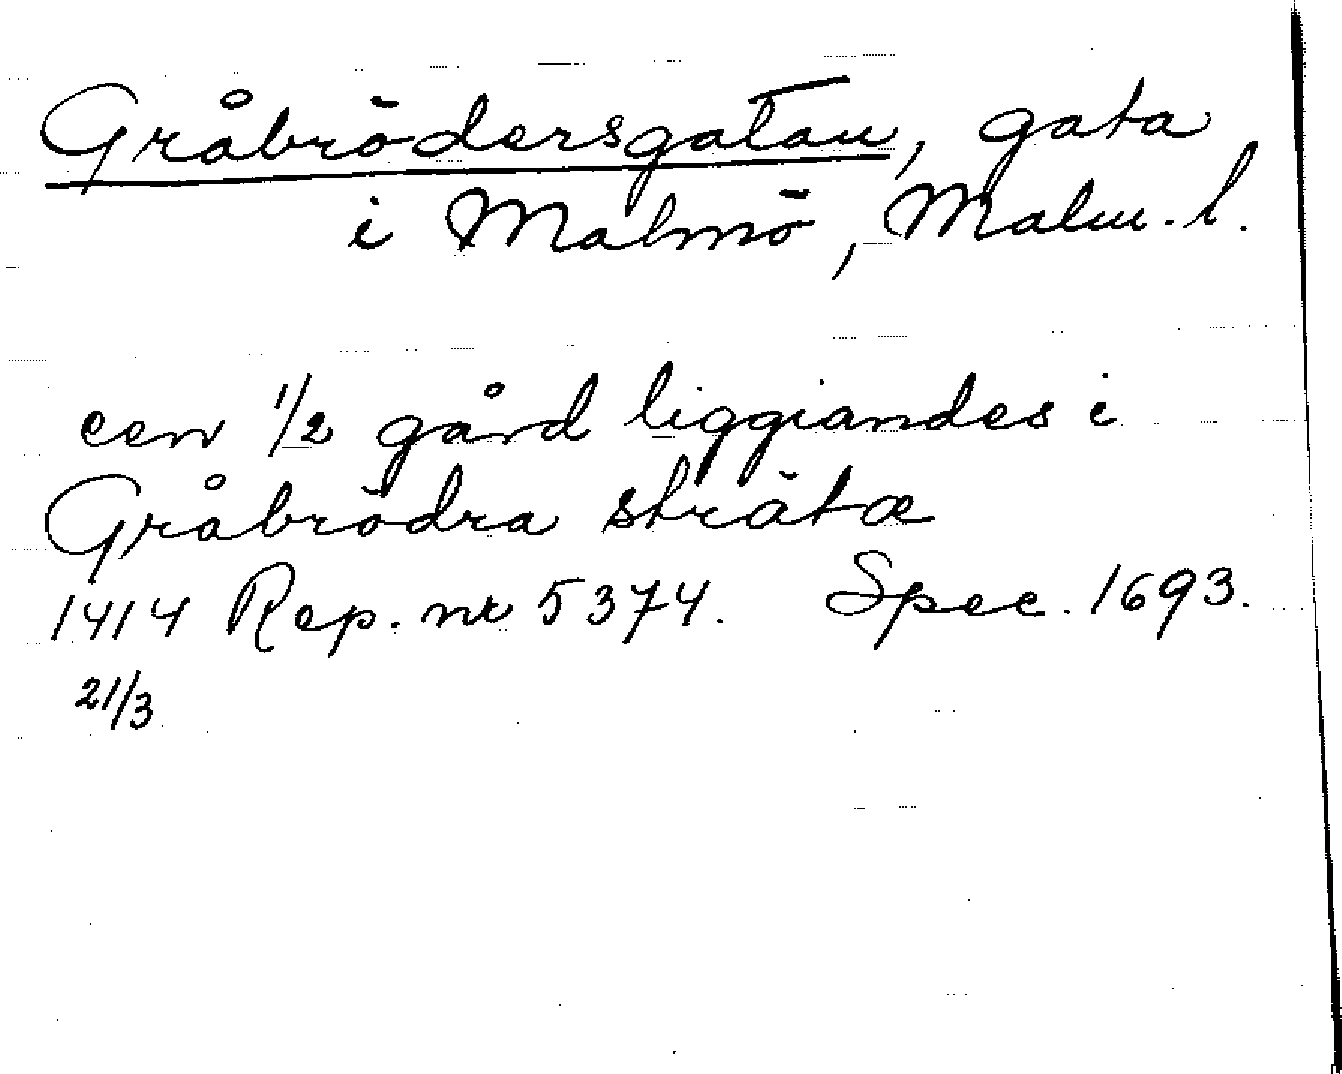 Gråbrödersgatan, gata
i Malmö, Malm. l.
een 1/2 gård liggiandes i
Gråbrödra strätæ
1414 Rep. nr 5374. Spec. 1693.
21/3